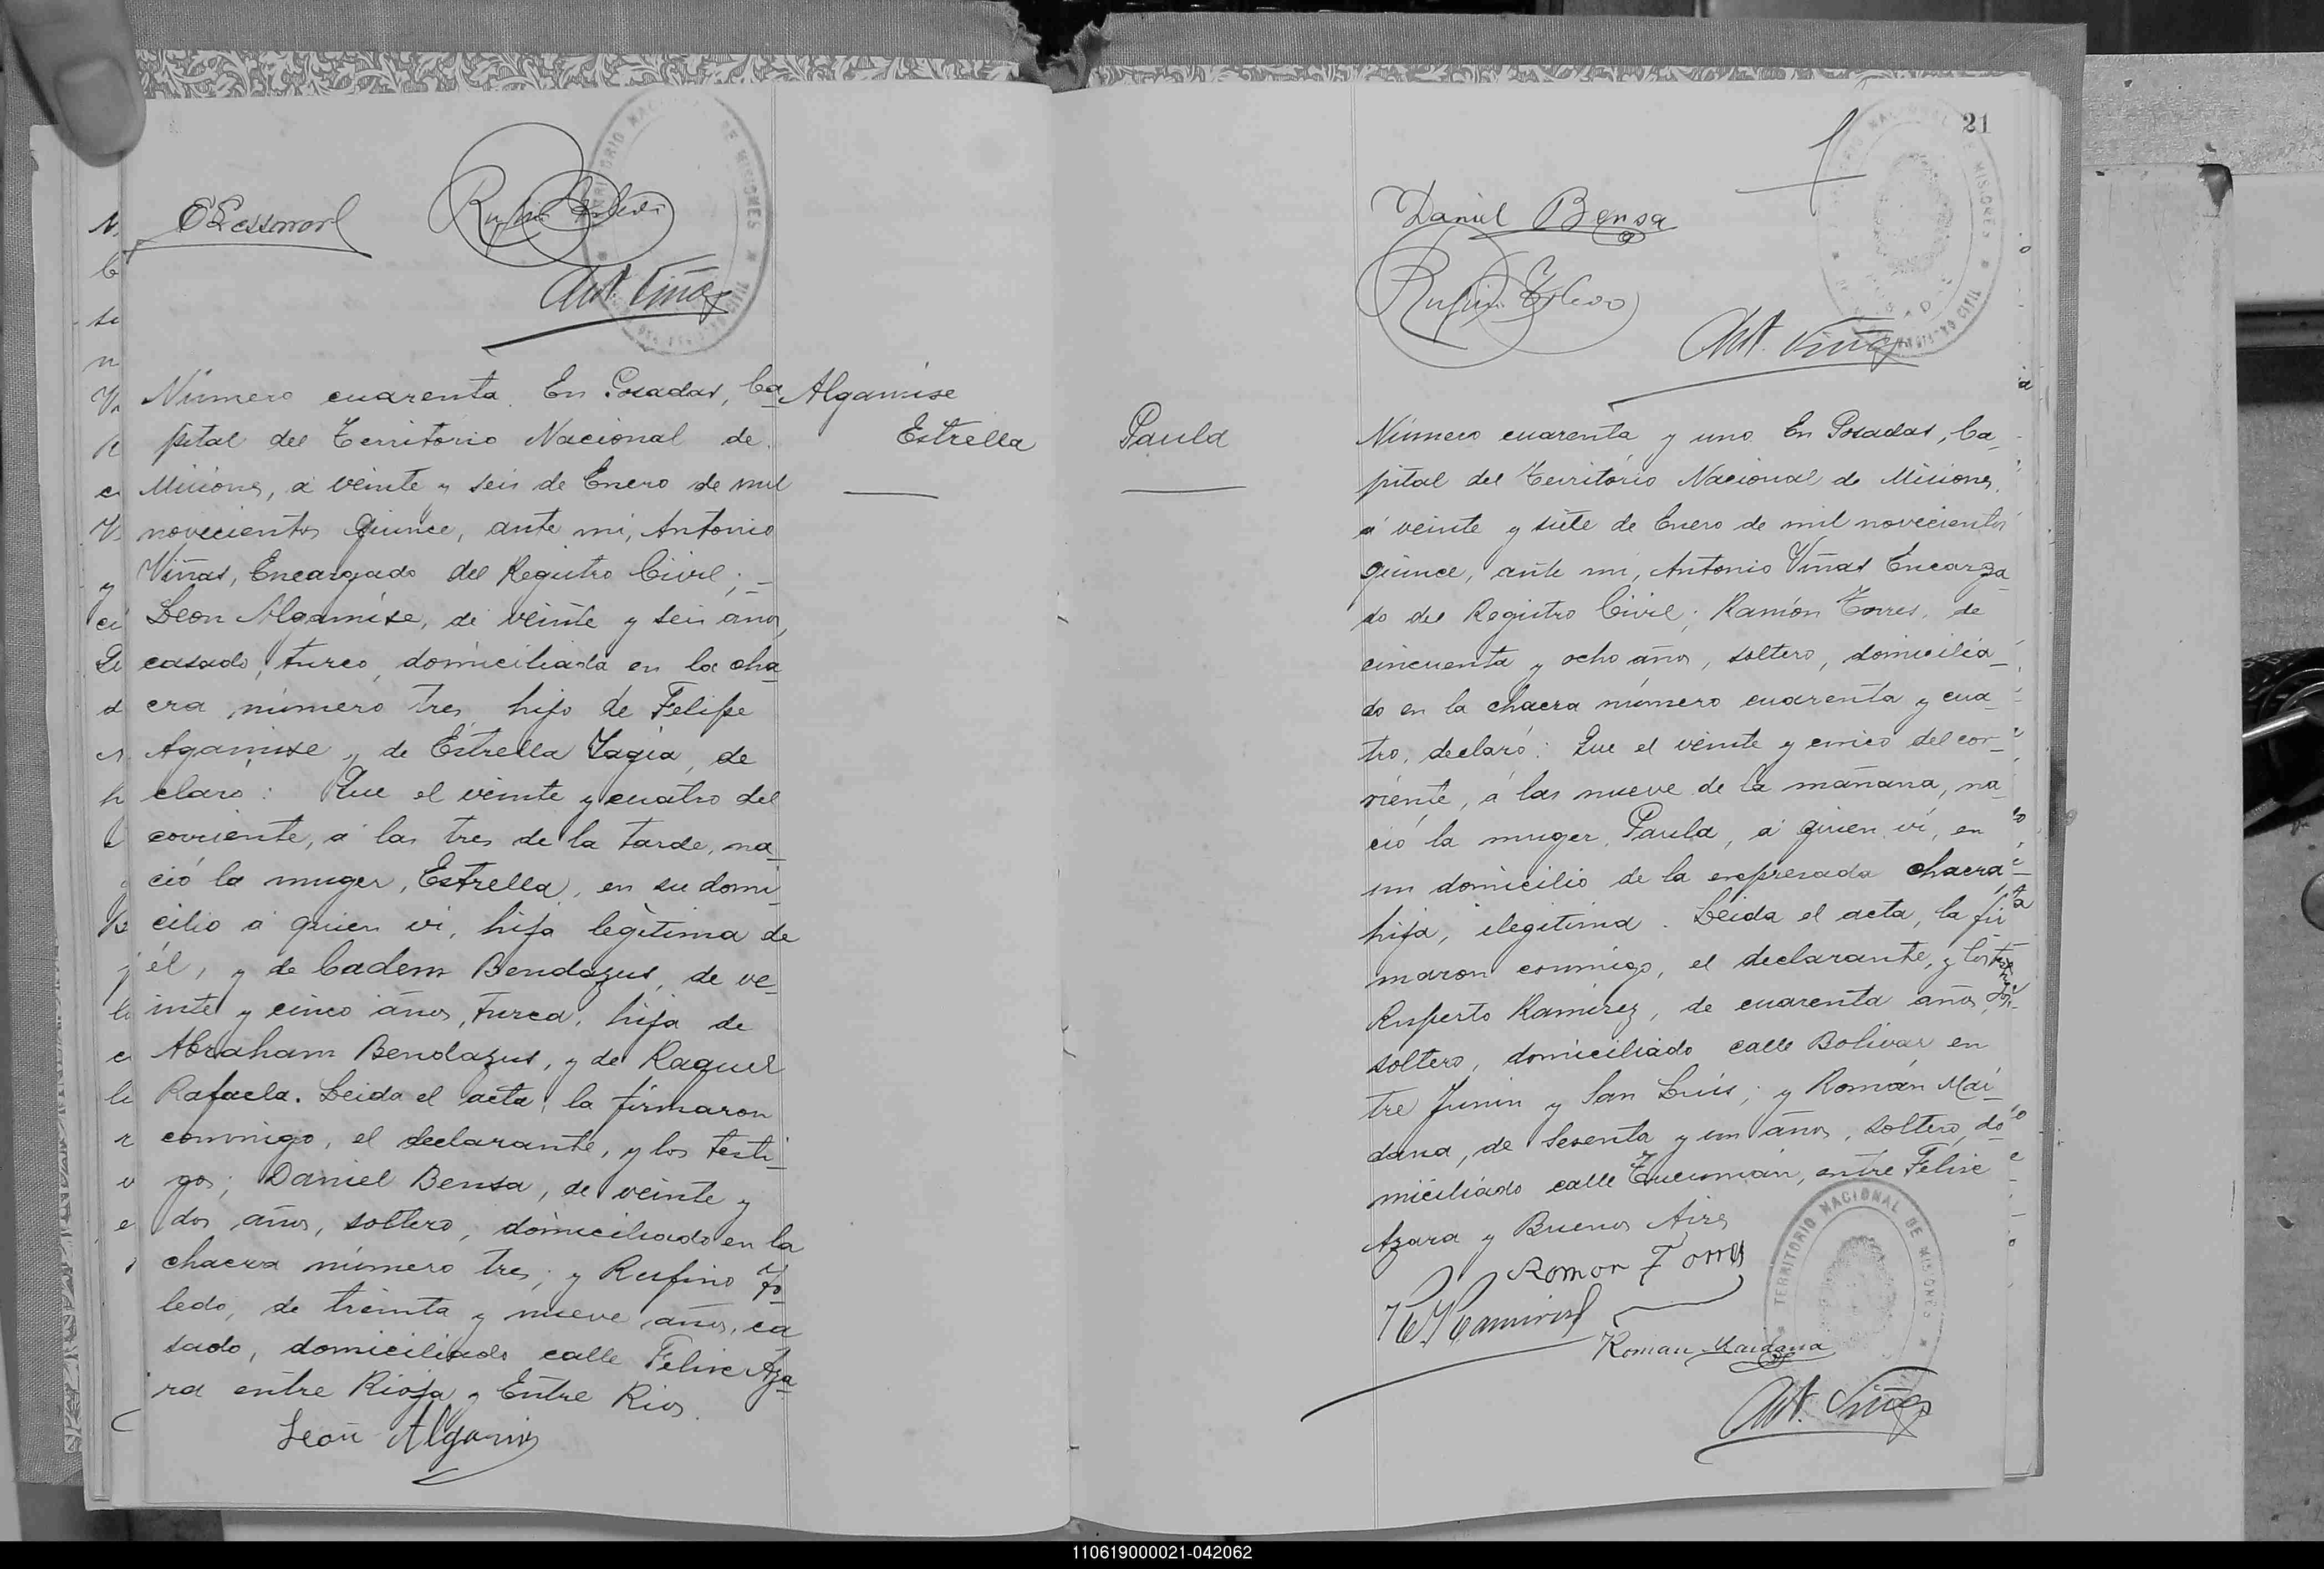 Número cuarenta. En Posadas, Ca-
pital del Territorio Nacional de
Misiones, á veinte y seis de Enero de mil
novecientos quince, ante mi, Antonio
Viñas, Encargado del Registro Civil; -
Leon Algamise, de veinte y seis años,
casado, turco, domiciliado en la cha-
cra número tres, hijo de Felipe
Agamise y de Estrella Yagia, de
claró: Que el veinte y cuatro del
corriente, á las tres de la tarde, na-
ció la muger, Estrella, en su domi-
cilio á quien vi, hija legitima de
él, y de Cadem Bendazus, de ve-
inte y cinco años, turca, hija de
Abraham Bendazus, y de Raquel
Rafaela. Leida el acta, la firmaron
conmigo, el declarante, y los testi-
gos; Daniel Bensa, de veinte y
dos años, soltero, domiciliado en la
chacra número tres; y Rufino To-
ledo, de treinta y nueve años, ca
sado, domiciliado calle Felix Aza-
ra entre Rioja y Entre Rios.
León Algamis
Algamise
Estrella
Paula
21
Daniel Bensa
Rufino Toledo
Ant. Viñas
Número cuarenta y uno. En Posadas, Ca-
pital del Territorio Nacional de Misiones,
á veinte y siete de Enero de mil novecientos
quince, ante mi, Antonio Viñas Encarga-
do del Registro Civil; Ramón Torres, de
cincuenta y ocho años, soltero, domicilia-
do en la chacra número cuarenta y cua-
tro, declaró: Que el veinte y cinco del cor-
riente, á las nueve de la mañana, na-
ció la muger, Paula, á quien vi, en
un domicilio de la expresada chacra-
hija, ilegitima. Leida el acta, la fir
maron conmigo, el declarante, y los testigos
Ruperto Ramirez, de cuarenta años,
soltero, domiciliado calle Bolivar en
tre Junin y San Luis; y Román Mai-
dana, de sesenta y un años, soltero, do-
miciliado calle Tucumán, entre Felix
Azara y Buenos Aires
Ramon Torres
R Ramirez
Roman Maidana
TERRITORIO NACIONAL DE MISIONES
Ant. Viñas
110619000021-042062